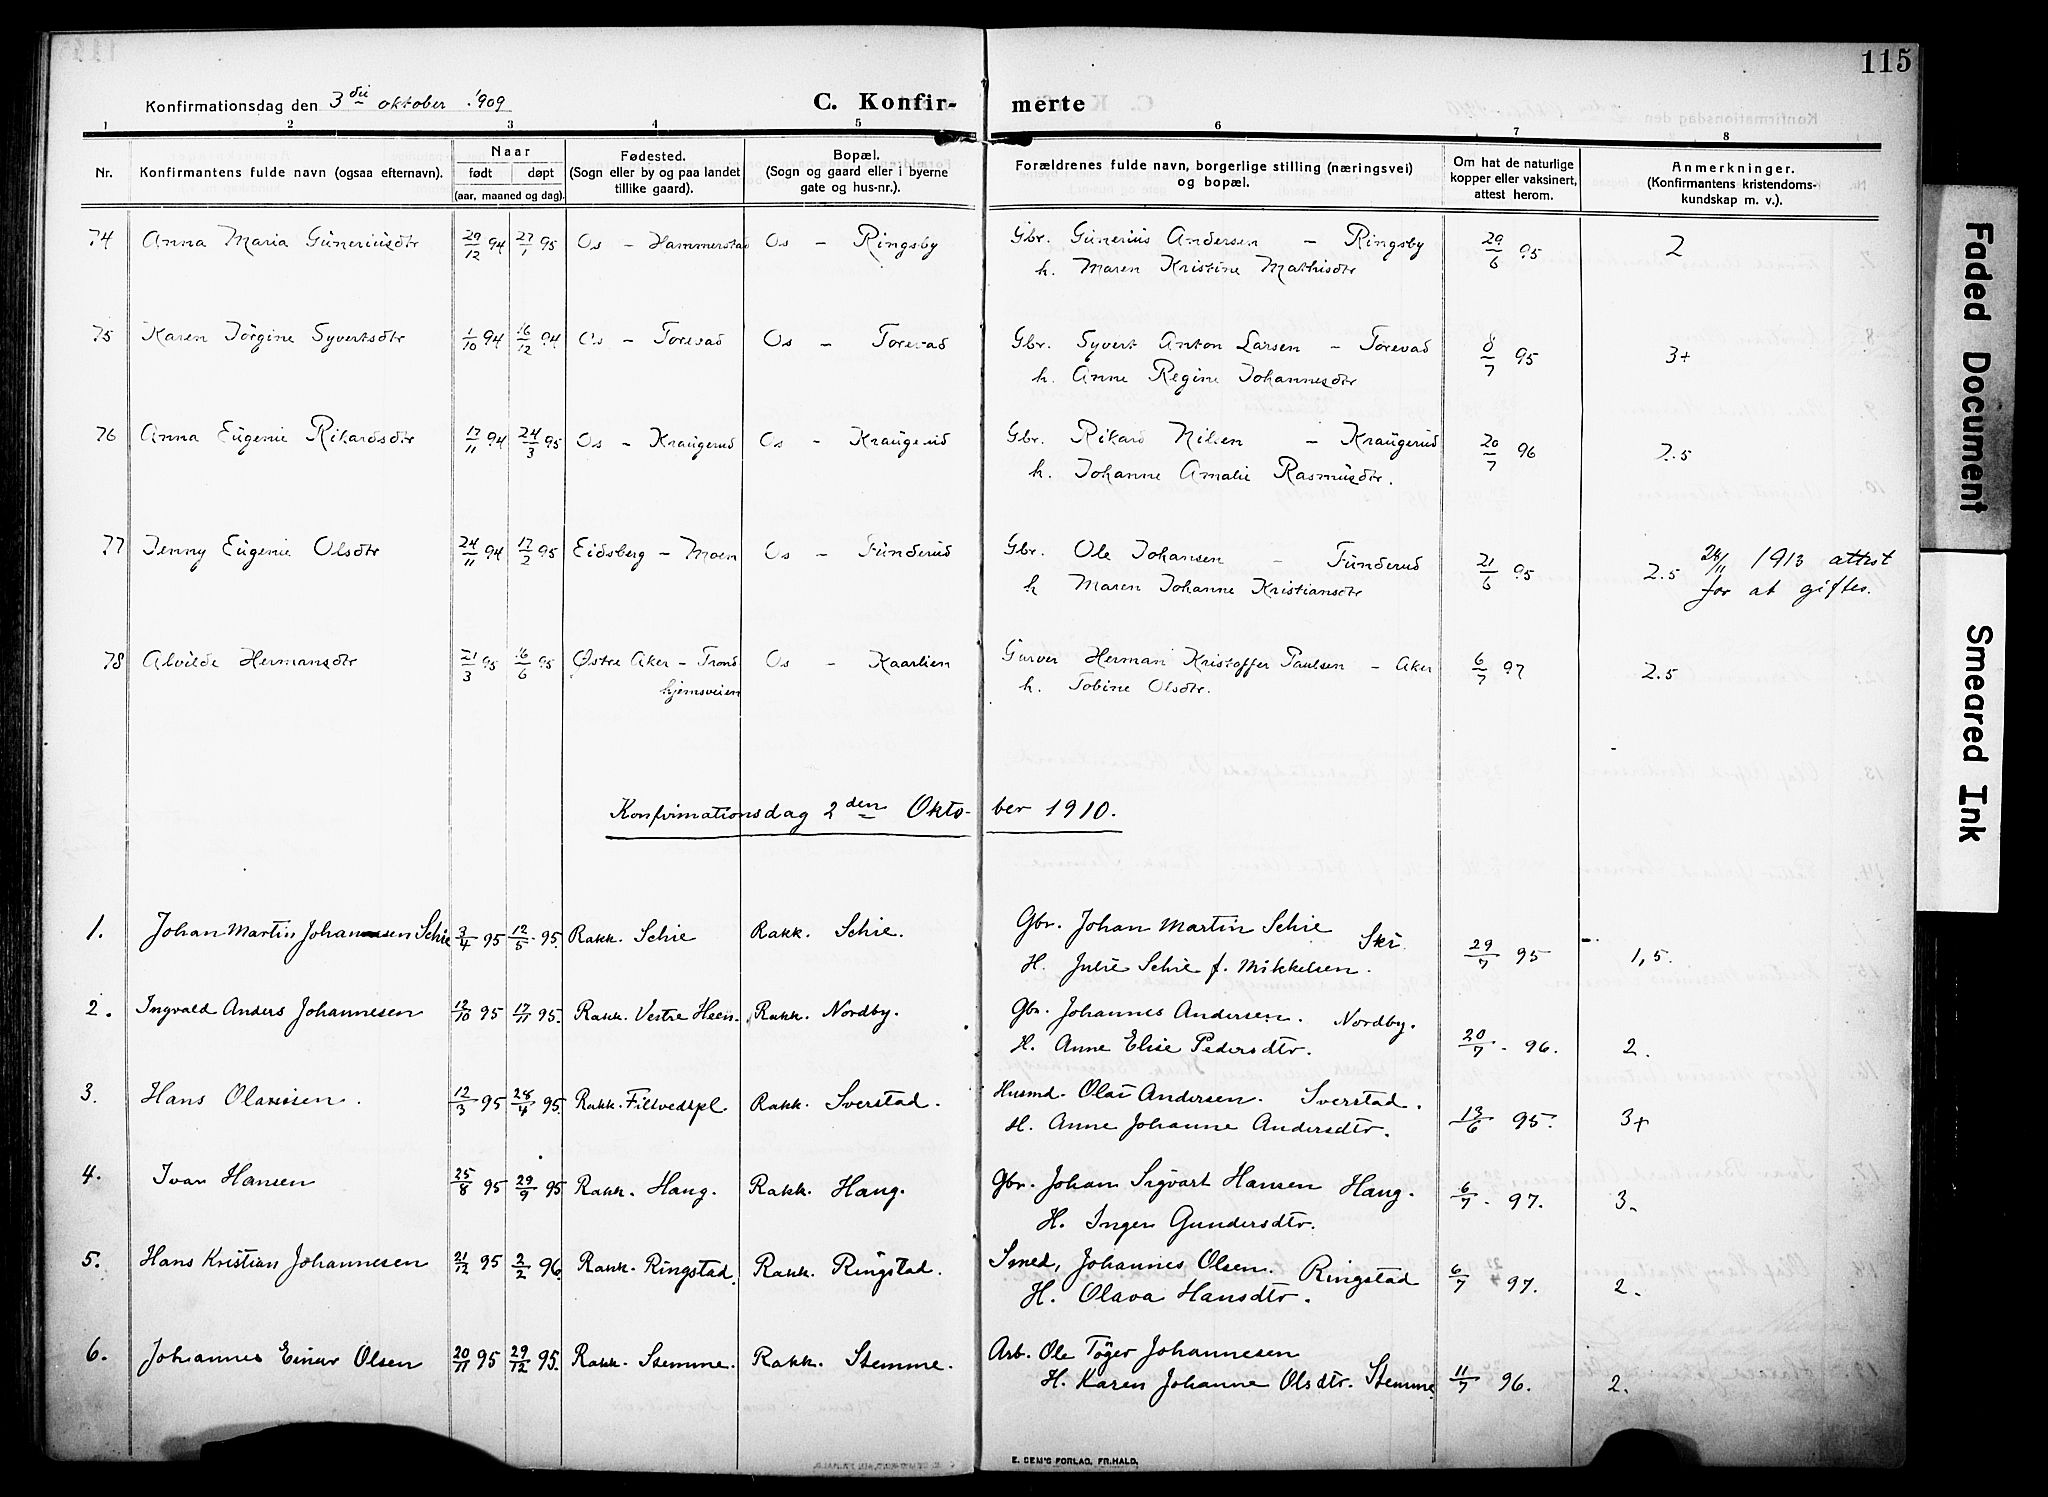 115
Konfirmationsdag den 3die oktober 1909
C. Konfir-
merte
1 2 3 4 5 6 7 8
Nr.
Konfirmantens fulde navn (ogsaa efternavn).
Naar
født døpt
(aar, maaned og dag).
Fødested.
(Sogn eller by og paa landet
tillike gaard).
Bopæl.
(Sogn og gaard eller i byerne
gate og hus-nr.).
Forældrenes fulde navn, borgerlige stilling (næringsvei)
og bopæl.
Om hat de naturlige
kopper eller vaksinert,
attest herom.
Anmerkninger.
(Konfirmantens kristendoms-
kundskap m. v.).
74 Anna Maria Güneriusdtr 29/12 94 27/1 95 Os - Hammerstad Os - Ringsby Gbr. Günerius Andersen - Ringsby 29/6 95 2
h. Maren Kristine Mathisdtr
75 Karen Jörgine Syvertsdtr 1/10 94 16/12 94 Os - Torevad Os - Torevad Gbr. Syvert Anton Larsen - Torevad 8/7 95 3+
h. Anne Regine Johannesdtr
76 Anna Eugenie Rikardsdtr 17/11 94 24/3 95 Os - Kraugerud Os - Kraugerud Gbr. Rikard Nilsen - Kraugerud 20/7 96 2.5
h. Johanne Amalie Rasmusdtr.
77 Jenny Eugenie Olsdtr 24/11 94 17/2 95 Eidsberg - Moen Os - Funderud Gbr. Ole Johansen - Funderud 21/6 95 2.5 24/11 1913 attest
h Maren Johanne Kristiansdtr for at giftes.
78 Alvilde Hermansdtr 21/3 95 16/6 95 Østre Aker - Trond Os - Kaarlien Garver Herman Kristoffer Paulsen - Aker 6/7 97 2.5
hjemsveien h. Tobine Olsdtr.
Konfirmationsdag 2den Okto- ber 1910.
1. Johan Martin Johannesen Schie 3/4 95 12/5 95. Rakk. Schie Rakk. Schie. Gbr. Johan Martin Schie Ski 29/7 95 1,5.
H. Julie Schie f. Mikkelsen.
2. Ingvald Anders Johannesen 12/10 95 17/11 95. Rakk. Vestre Heen. Rakk. Nordby. Gbr. Johannes Andersen. Nordby. 20/7 - 96. 2.
H. Anne Elise Pedersdtr.
3. Hans Olaussen. 12/3 95 28/4 95 Rakk. Filtvedtpl. Rakk. Sverstad. Husmd. Olai Andersen. Sverstad. 13/6 95. 3+
H. Anne Johanne Andersdtr.
4. Ivar Hansen 25/8 95 29/9 95 Rakk. Haug. Rakk. Haug. Gbr. Johan Sigvart Hansen Haug. 6/7 - 97. 3.
H. Inger Gundersdtr.
5. Hans Kristian Johannesen 21/12 95 2/2 96. Rakk. Ringstad. Rakk. Ringstad. Smed, Johannes Olsen. Ringstad 6/7 97. 2.
H. Olava Hansdtr.
6. Johannes Einar Olsen 20/11 95 29/12 95. Rakk. Stemme. Rakk. Stemme. Arb. Ole Töger Johannesen
H. Karen Johanne Olsdtr. Stemme 11/7 96. 2.
E. SEM'S FORLAG, FR.HALD.
Faded Document
Smeared Ink